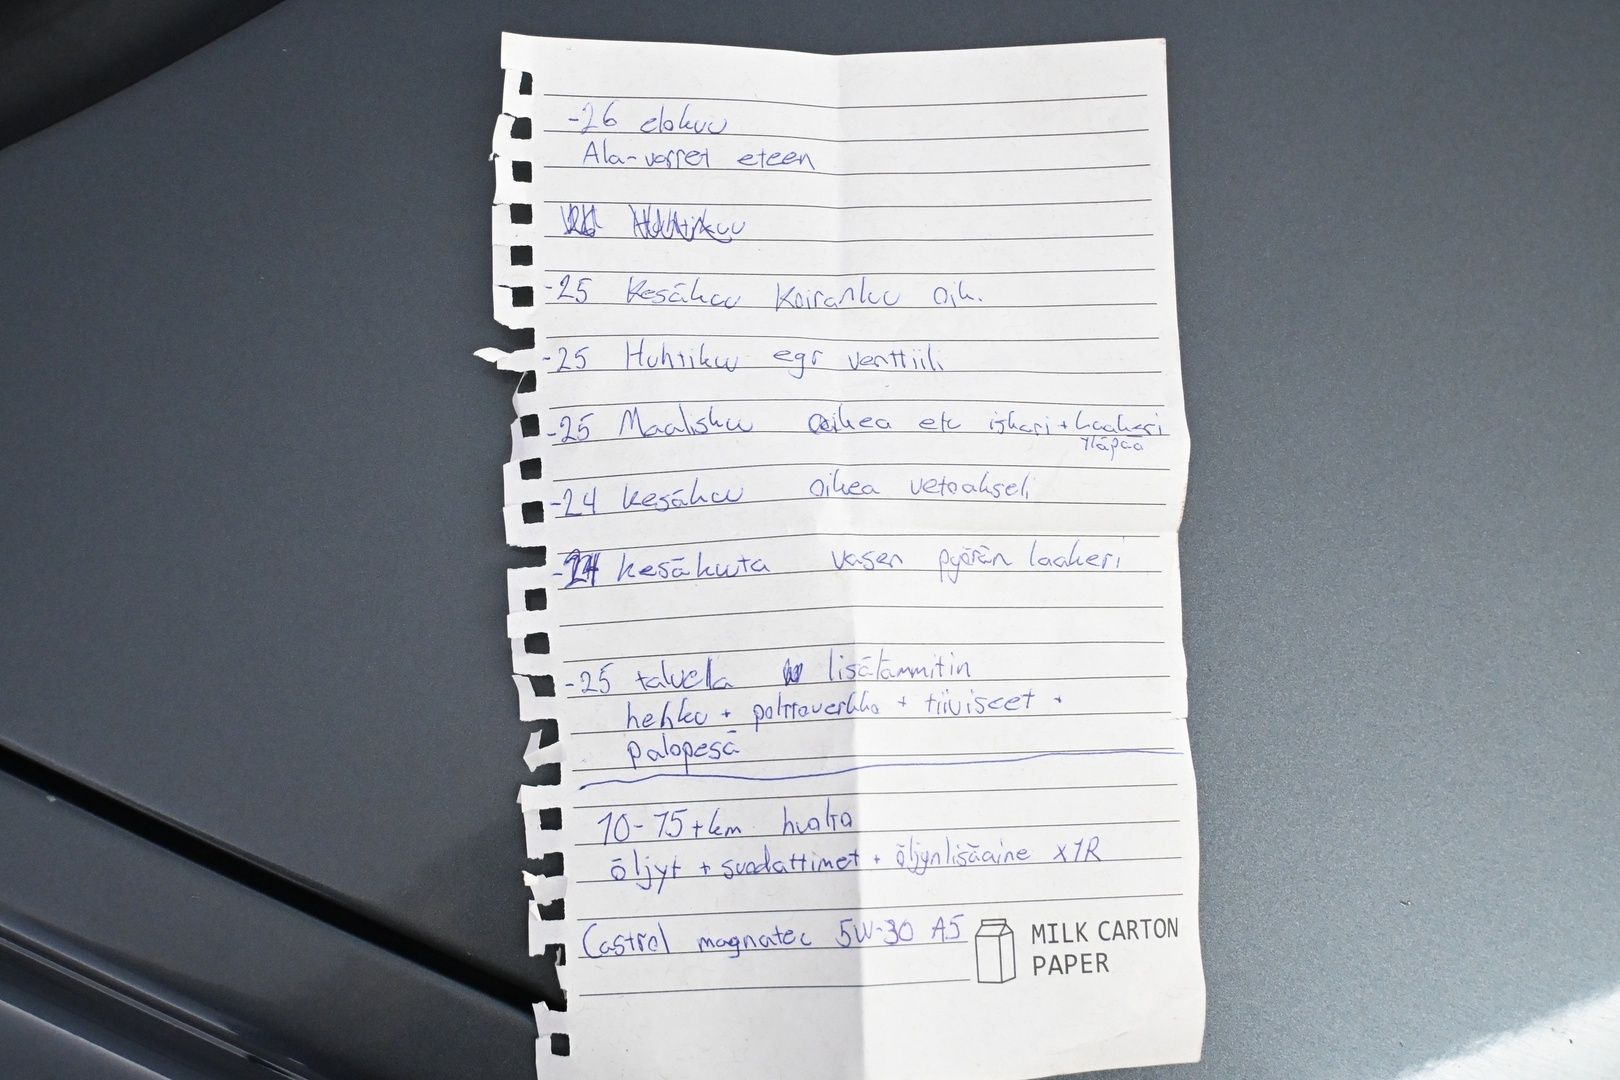 -26 elokuu
Ala-varret eteen
-25 Kesäkuu Koiranluu oik.
-25 Huhtikuu egr venttiili
-25 Maalisku oikea etu iskari + laakeri
Yläpää
-24 kesäkuu oikea vetoakseli
-24 kesäkuuta vasen pyörän laakeri
-25 talvella lisälämmitin
hehku + polttoverkko + tiivisteet +
palopesä
10-15 tkm huolto
öljyt + suodattimet + öljynlisäaine x1R
Castrol magnatec 5W-30 A5
MILK CARTON
PAPER